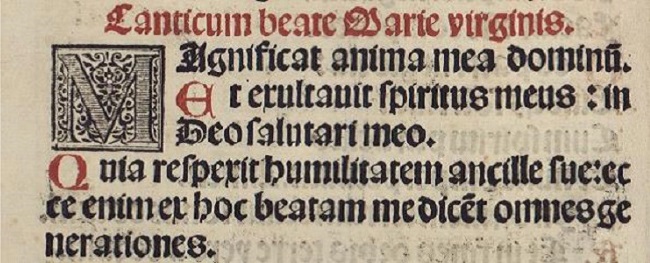 Canticum beate Marie virginis.
MAgnificat anima mea dominū.
Et exultauit spiritus meus : in
Deo salutari meo.
Quia respexit humilitatem ancille sue: ec
ce enim ex hoc beatam me dicēt omnes ge
nerationes.